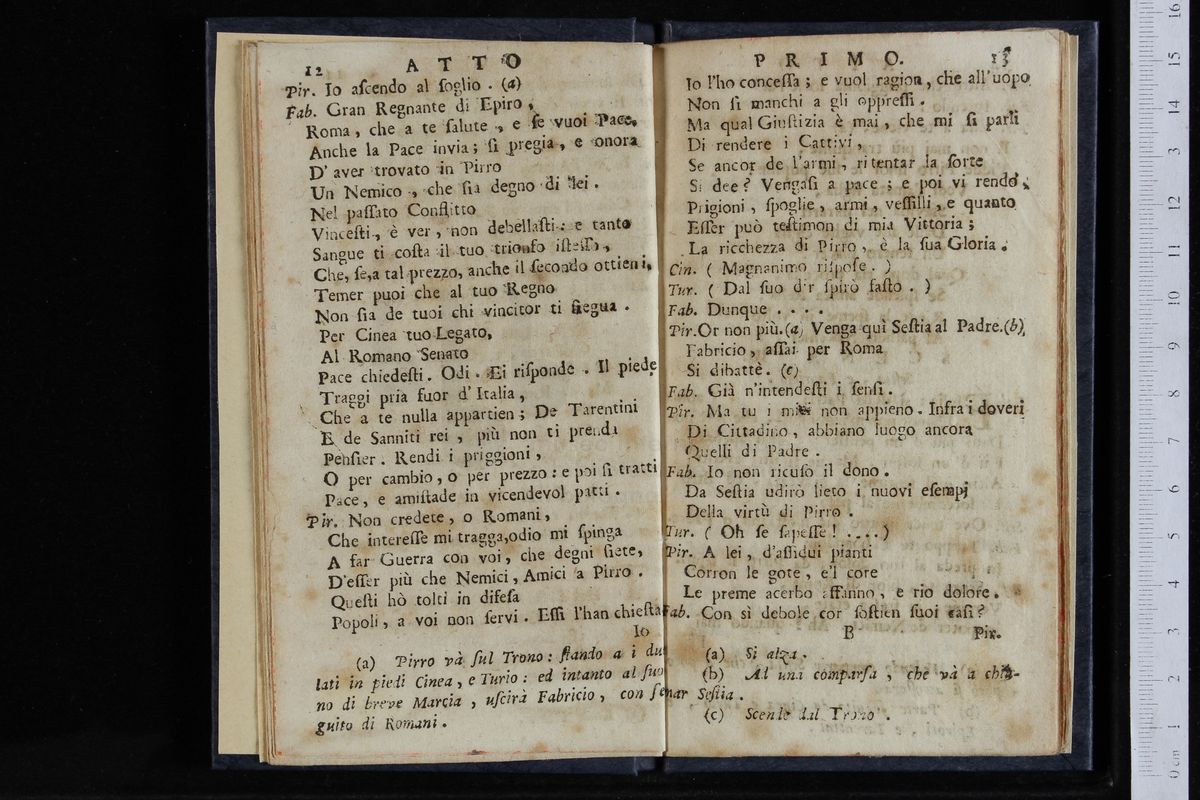 12 ATTO
Pir. Io ascendo al soglio . (a)
Fab. Gran Regnante di Epiro ,
Roma , che a te salute , e se vuoi Pace,
Anche la Pace invia ; si pregia , e onora
D' aver trovato in Pirro
Un Nemico , che sia degno di lei .
Nel passato Conflitto
Vincesti , è ver , non debellasti : e tanto
Sangue ti costa il tuo trionfo istesso ,
Che, se,a tal prezzo, anche il secondo ottieni,
Temer puoi che al tuo Regno
Non sia de tuoi chi vincitor ti siegua .
Per Cinea tuo Legato,
Al Romano Senato
Pace chiedesti . Odi . Ei risponde . Il piede
Traggi pria fuor d' Italia ,
Che a te nulla appartien ; De Tarentini
E de Sanniti rei , più non ti prenda
Pensier . Rendi i priggioni ,
O per cambio , o per prezzo : e poi si tratti
Pace , e amistade in vicendevol patti .
Pir. Non credete , o Romani ,
Che interesse mi tragga,odio mi spinga
A far Guerra con voi , che degni siete,
D'esser più che Nemici , Amici a Pirro .
Questi hò tolti in difesa
Popoli , a voi non servi . Essi l'han chiesta
Io
(a) Pirro và sul Trono : stando a i due
lati in piedi Cinea , e Turio : ed intanto al suo
no di breve Marcia , uscirà Fabricio , con se
guito di Romani .
PRIMO. 13
Io l'ho concessa ; e vuol ragion , che all'uopo
Non si manchi a gli oppressi .
Ma qual Giustizia è mai , che mi si parli
Di rendere i Cattivi ,
Se ancor de l'armi , ritentar la sorte
Si dee ? Vengasi a pace ; e poi vi rendo ,
Prigioni , spoglie , armi , vessilli , e quanto
Esser può testimon di mia Vittoria ;
La ricchezza di Pirro , è la sua Gloria .
Cin. ( Magnanimo rispose . )
Tur. ( Dal suo dir spirò fasto . )
Fab. Dunque . . . .
Pir.Or non più.(a) Venga quì Sestia al Padre.(b)
Fabricio , assai per Roma
Si dibattè . (c)
Fab. Già n'intendesti i sensi .
Pir. Ma tu i miei non appieno . Infra i doveri
Di Cittadino , abbiano luogo ancora
Quelli di Padre .
Fab. Io non ricuso il dono .
Da Sestia udirò lieto i nuovi esempj
Della virtù di Pirro .
Tur. ( Oh se sapesse ! . . . . )
Pir. A lei , d'assidui pianti
Corron le gote , e'l core
Le preme acerbo affanno , e rio dolore .
Fab. Con sì debole cor sostien suoi casi ?
B Pir.
(a) Si alza .
(b) Ad una comparsa , che và a chia-
nar Sestia .
(c) Scende dal Trono .